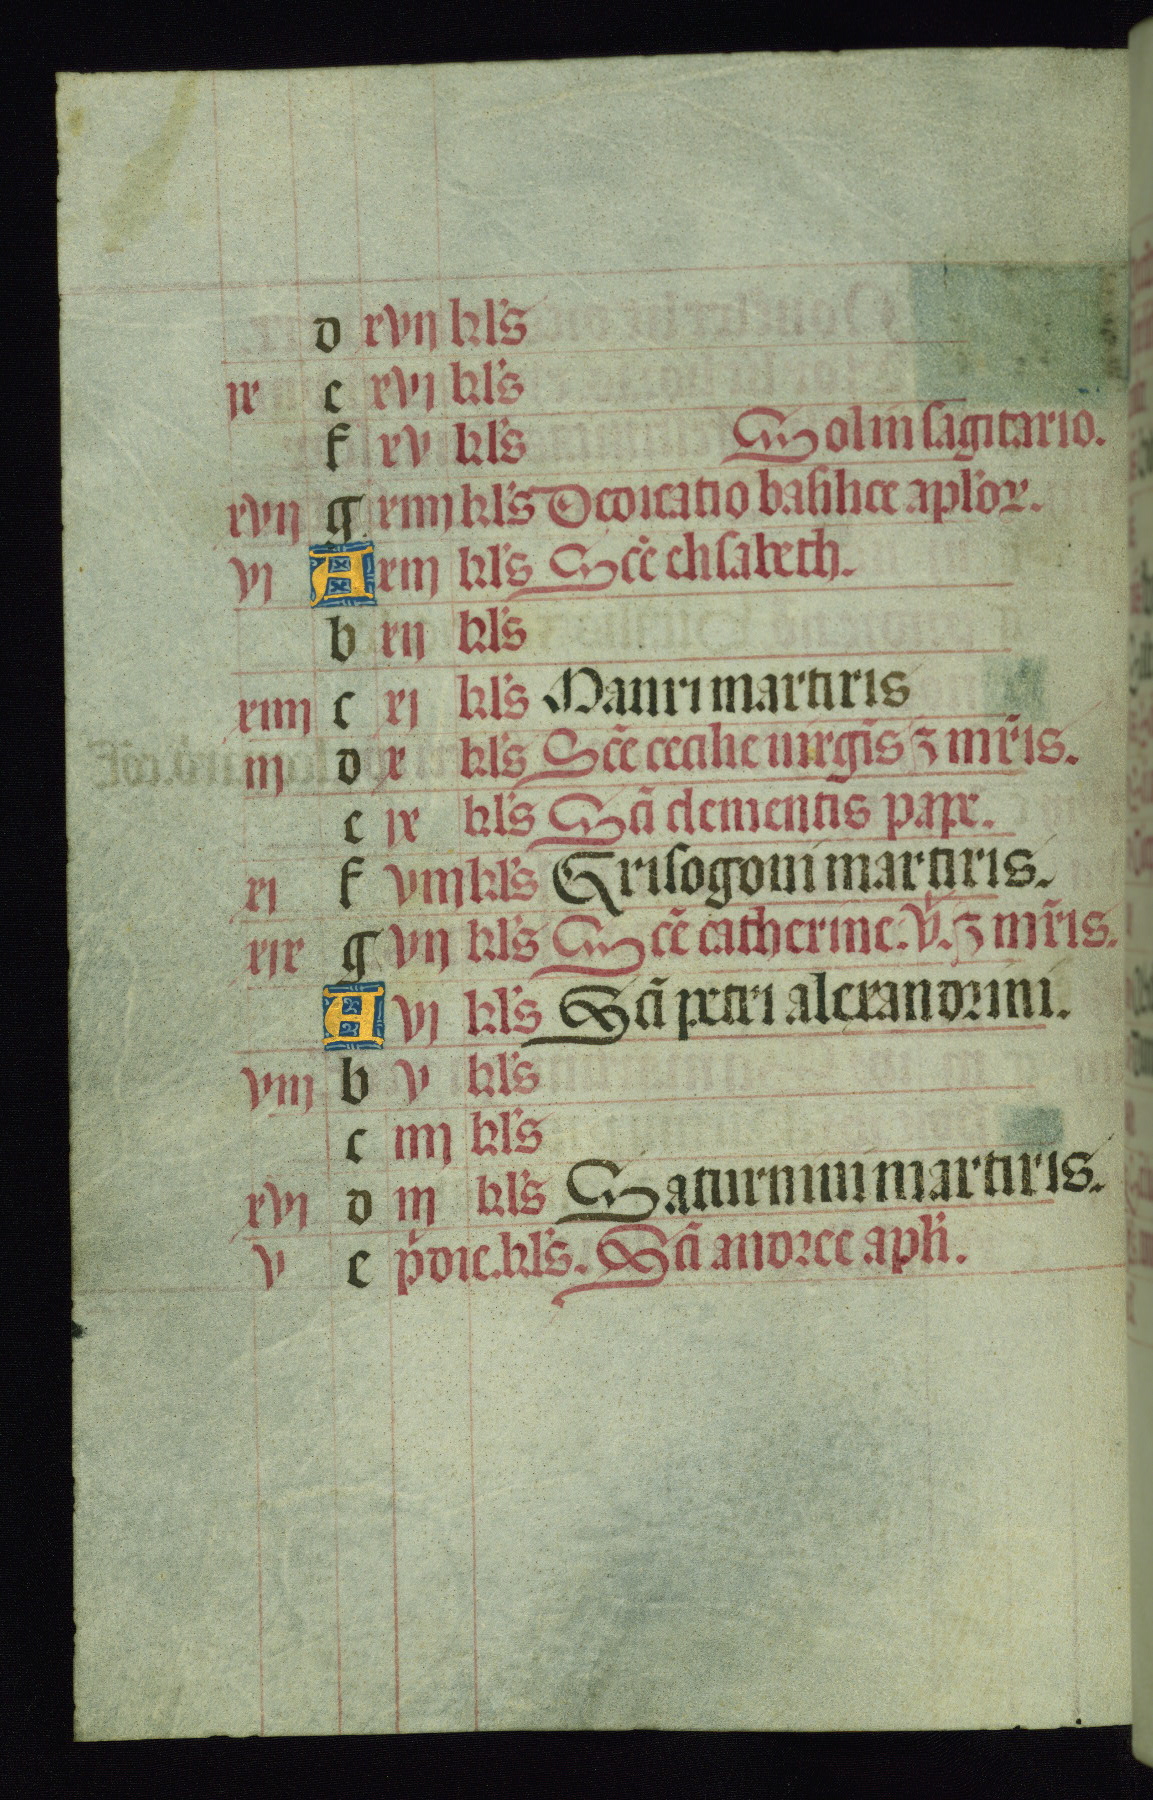 d xvij kl's
ix e xvj kl's
f xv kl's Sol in sagitario.
xvij g xiiij kl's Dedicatio basilice apl'oꝝ.
vj A xiij kl's Scē elisabeth.
b xij kl's
xiiij c xj kl's Mauri martiris
iij d x kl's Scē cecilie uirgīs ⁊ mr̄is.
e ix kl's Sc̄i clementis pape.
xj f viij kl's Grisogoni martiris.
xix g vij kl's Scē catherine. v̄. ⁊ mr̄is.
A vj kl's Sc̄i petri alexandrini.
viij b v kl's
c iiij kl's
xvj d iij kl's Saturnini martiris.
v e pͥdie. kl's. Sc̄i andree apl'i.